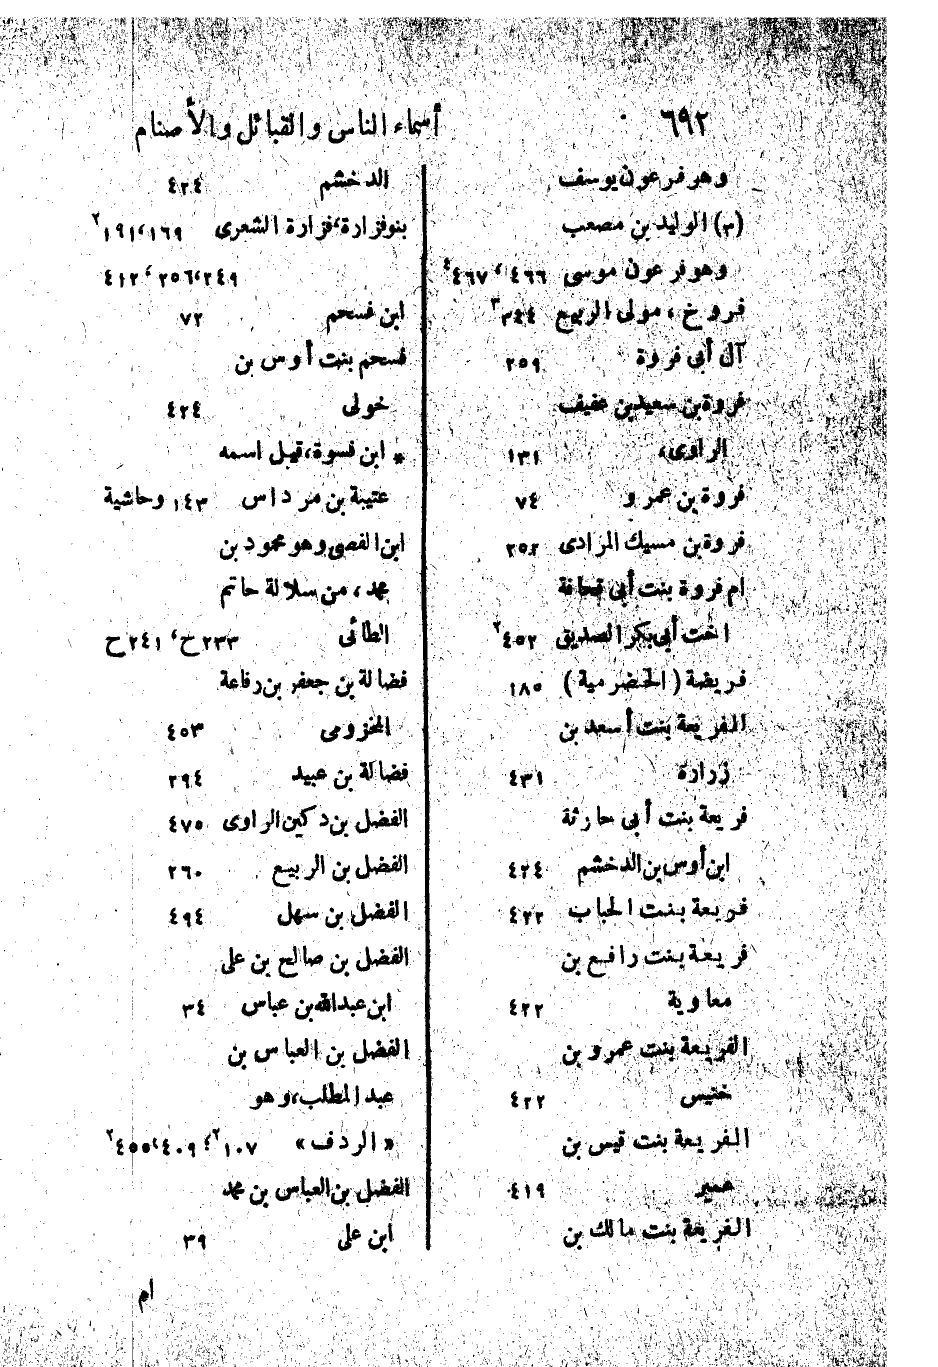 ٦٩٢
أسماء الناس والقبائل والأصنام
وهو فرعون يوسف
(٣) الوليد بن مصعب
وهو فرعون موسى ٤٦٦، ٤٦٧
فروخ، مولى الربيع ٣٤٤
آل أبى فروة ٢٥٩
فروة بن سعيد بن عفيف
الراوى، ١٣١
فروة بن عمرو ٧٤
فروة بن مسيك المرادى ٢٥٢
ام فروة بنت أبى قحافة
اخت أبى بكر الصديق ٤٥٢
فريضة (الحضرمية) ١٨٥
الفريعة بنت أسعد بن
زرارة ٤٣١
فريعة بنت أبى حارثة
ابن أوس بن الدخشم ٤٢٤
فريعة بنت الحباب ٤٢٢
فريعة بنت رافع بن
معاوية ٤٢٢
الفريعة بنت عمرو بن
خنيس ٤٢٢
الفريعة بنت قيس بن
٤١٩
الفريعة بنت مالك بن
الدخشم ٤٢٤
بنو فزارة، فزارة الشعرى ١٦٩، ١٩١٢
٢٤٩، ٢٥٦، ٤١٢
ابن فسحم ٧٢
فسحم بنت أوس بن
خولى ٤٢٤
* ابن فسوة، قيل اسمه
عتيبة بن مرداس ١٤٣ وحاشية
ابن الفصى وهو محمود بن
محمد، من سلالة حاتم
الطائى ٢٣٣ح، ٢٤١ح
فضالة بن جعفر بن رفاعة
المخزومى ٤٥٣
فضالة بن عبيد ٢٩٤
الفضل بن دكين الراوى ٤٧٥
الفضل بن الربيع ٢٦٠
الفضل بن سهل ٤٩٤
الفضل بن صالح بن على
ابن عبدالله بن عباس ٣٤
الفضل بن العباس بن
عبد المطلب، وهو
«الردف» ١٠٧٢، ٤٠٩، ٤٥٥٢
الفضل بن العباس بن محمد
ابن على ٣٩
ام